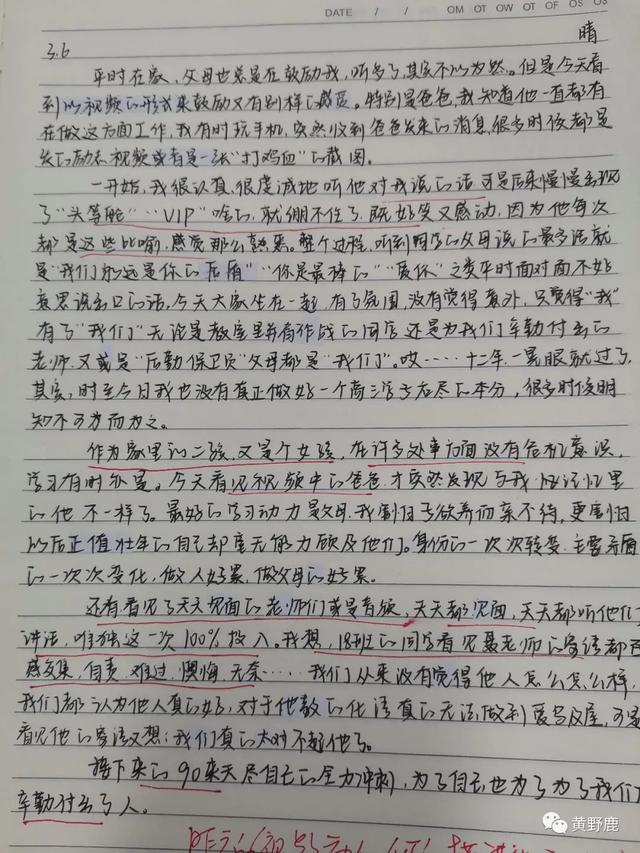 DATE / / OM OT OW OT OF OS OS
3.6 晴
平时在家，父母也总是在鼓励我，听多了，其实不以为然。但是今天看
到以视频的形式来鼓励又有别样的感觉。特别是爸爸，我知道他一直都有
在做这方面工作，我有时玩手机，突然收到爸爸发来的消息，很多时候都是
长的励志视频或者是一张"打鸡血"的截图。
一开始，我很认真、很虔诚地听他对我说的话，可是后来慢慢出现
了"头等舱""VIP"啥的，就绷不住了，既好笑又感动，因为他每次
都是这些比喻，感觉那么熟悉。整个过程，听到同学的父母说的最多话就
是"我们永远是你的后盾""你是最棒的""爱你"之类平时面对面不好
意思说出口的话，今天大家坐在一起，有了氛围，没有觉得意外，只觉得"我"
有了"我们"无论是教室里并肩作战的同学还是为我们辛勤付出的
老师，又或是"后勤保卫员"父母都是"我们"。哎……十二年，一晃眼就过了，
其实，时至今日我也没有真正做好一个高三学子应尽的本分，很多时候明
知不可为而为之。
作为家里的二孩，又是个女孩，在许多处事方面没有危机意识，
学习有时亦是。今天看见视频中的爸爸，才突然发现与我记忆里
的他不一样了。最好的学习动力是父母，我害怕子欲养而亲不待，更害怕
以后正值壮年的自己却毫无能力顾及他们。身份的一次次转变，主要矛盾
的一次次变化，做人好累，做父母的好累。
还有看见了天天见面的老师们或是有频，天天都见面，天天都听他们
讲话，唯独这一次100%投入。我想，18班的同学看见聂老师的寄语都百
感交集，自责、难过、懊悔、无奈……我们从来没有觉得他人怎么怎么样，
我们都认为他人真的好，对于他教的化清真的无法做到爱屋及屋，可是
看见他的寄语又想：我们真的太对不起他了。
接下来的90来天尽自己的全力冲刺，为了自己也为了为了我们
辛勤付出了人。
黄野鹿